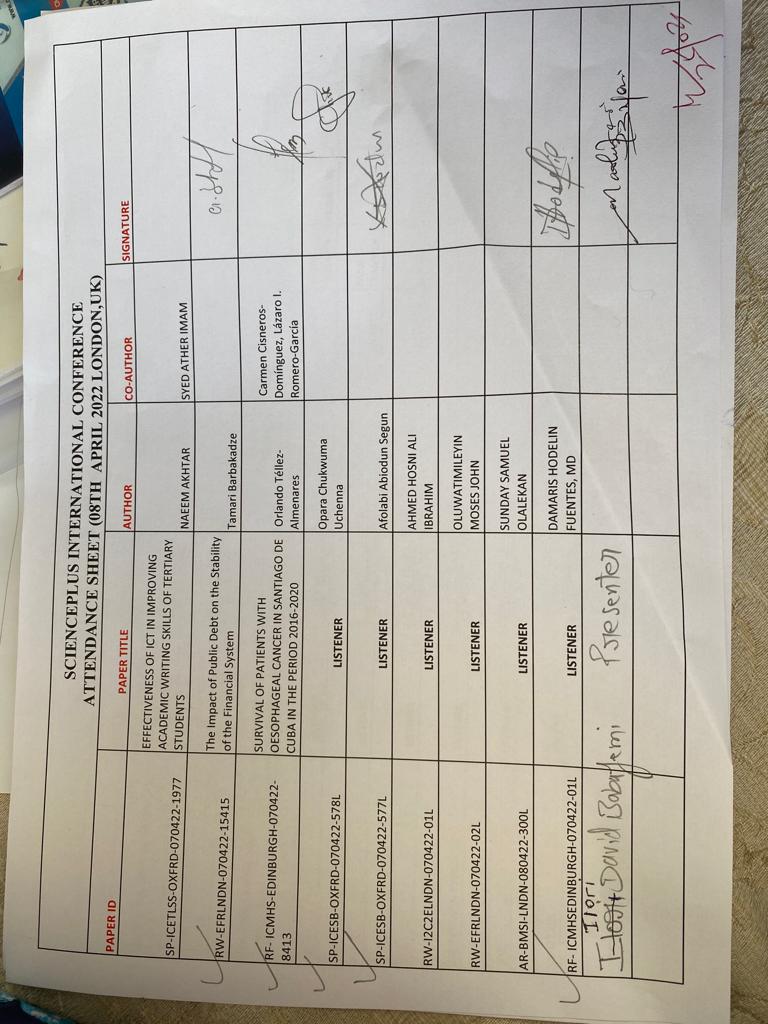 SCIENCEPLUS INTERNATIONAL CONFERENCE
ATTENDANCE SHEET (08TH APRIL 2022 LONDON,UK)
PAPER ID PAPER TITLE AUTHOR CO-AUTHOR SIGNATURE
SP-ICETLSS-OXFRD-070422-1977
EFFECTIVENESS OF ICT IN IMPROVING
ACADEMIC WRITING SKILLS OF TERTIARY
STUDENTS
NAEEM AKHTAR
SYED ATHER IMAM
RW-EFRLNDN-070422-15415
The Impact of Public Debt on the Stability
of the Financial System
Tamari Barbakadze
RF- ICMHS-EDINBURGH-070422-
8413
SURVIVAL OF PATIENTS WITH
OESOPHAGEAL CANCER IN SANTIAGO DE
CUBA IN THE PERIOD 2016-2020
Orlando Téllez-
Almenares
Carmen Cisneros-
Domínguez, Lázaro I.
Romero-García
SP-ICESB-OXFRD-070422-578L
LISTENER
Opara Chukwuma
Uchenna
SP-ICESB-OXFRD-070422-577L
LISTENER
Afolabi Abiodun Segun
RW-I2C2ELNDN-070422-01L
LISTENER
AHMED HOSNI ALI
IBRAHIM
RW-EFRLNDN-070422-02L
LISTENER
OLUWATIMILEYIN
MOSES JOHN
AR-BMSI-LNDN-080422-300L
LISTENER
SUNDAY SAMUEL
OLALEKAN
RF- ICMHSEDINBURGH-070422-01L
LISTENER
DAMARIS HODELIN
FUENTES, MD
Ilori
David Bobafemi Presenter